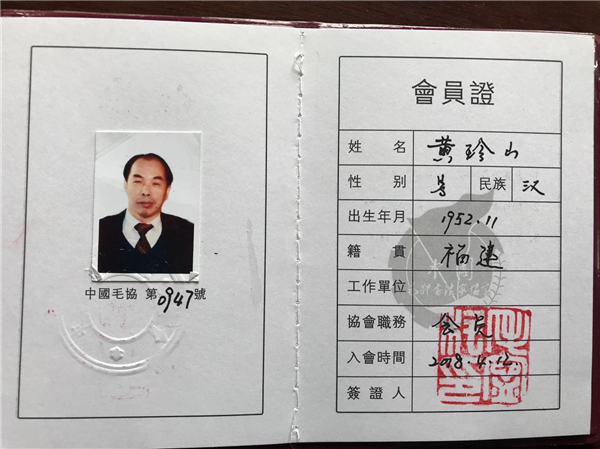 中國毛協 第0947號
會員證
姓名 黄珍山
性别 男 民族 汉
出生年月 1952.11
籍貫 福建
工作單位
協會職務 会员
入會時間 2018.4.12
簽證人